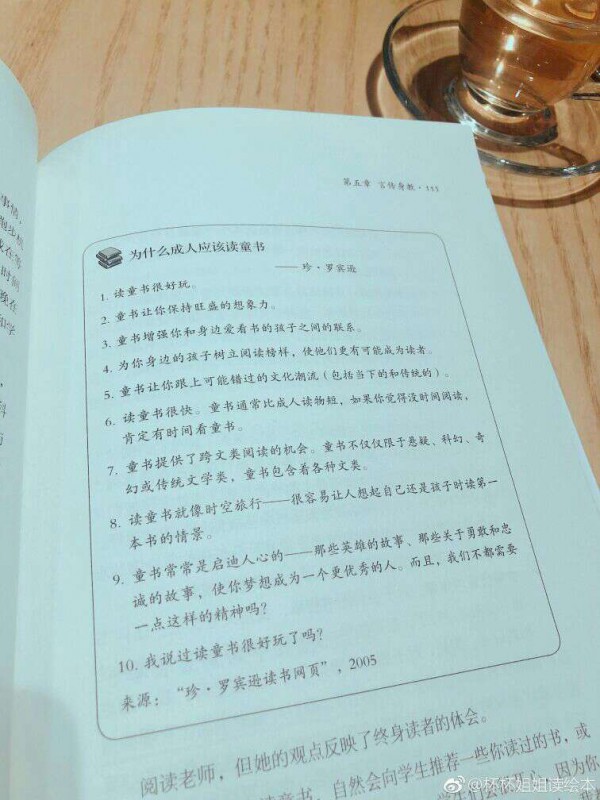 第五章 言传身教·155
为什么成人应该读童书
——珍·罗宾逊
1. 读童书很好玩。
2. 童书让你保持旺盛的想象力。
3. 童书增强你和身边爱看书的孩子之间的联系。
4. 为你身边的孩子树立阅读榜样，使他们更有可能成为读者。
5. 童书让你跟上可能错过的文化潮流（包括当下的和传统的）。
6. 读童书很快。童书通常比成人读物短，如果你觉得没时间阅读，
肯定有时间看童书。
7. 童书提供了跨文类阅读的机会。童书不仅仅限于悬疑、科幻、奇
幻或传统文学类，童书包含着各种文类。
8. 读童书就像时空旅行——很容易让人想起自己还是孩子时读第一
本书的情景。
9. 童书常常是启迪人心的——那些英雄的故事、那些关于勇敢和忠
诚的故事，使你梦想成为一个更优秀的人。而且，我们不都需要
一点这样的精神吗？
10. 我说过读童书很好玩了吗？
来源：“珍·罗宾逊读书网页”，2005
阅读老师，但她的观点反映了终身读者的体会。
读童书，自然会向学生推荐一些你读过的书，或
因为你
@杯杯姐姐读绘本